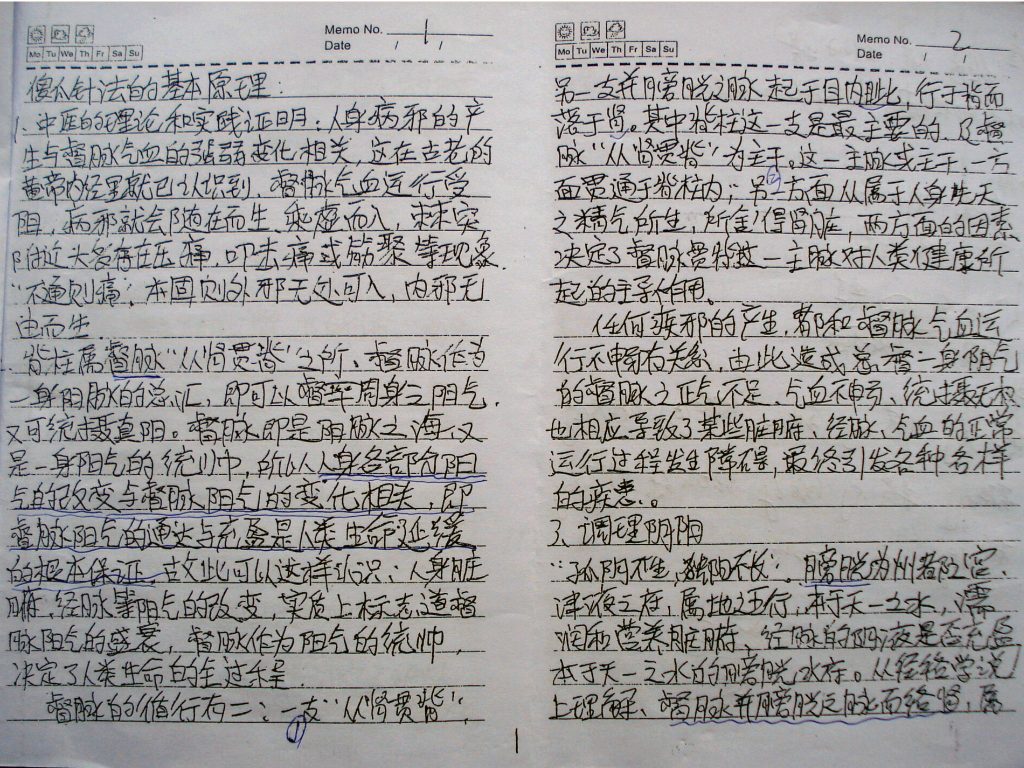 Memo No. 1
Date / /
Mo Tu We Th Fr Sa Su
傻瓜针法的基本原理:
1、中医的理论和实践证明:人身病邪的产
生与督脉气血的强弱变化相关,这在古老的
黄帝内经里就已认识到,督脉气血运行受
阻,病邪就会随在而生、乘虚而入,棘突
附近大多存在压痛,叩击痛或筋聚等现象.
“不通则痛”,本固则外邪无处可入,内邪无
由而生
脊柱属督脉“从肾贯脊”之所、督脉作为
一身阳脉的总汇,即可以督率周身之阳气,
又可统摄真阳。督脉即是阳脉之海、又
是一身阳气的统帅,所以人身各部份阳
气的改变与督脉阳气的变化相关,即
督脉阳气的通达与充盈是人类生命延缓
的根本保证,故此可以这样认识:人身脏
腑、经脉等阳气的改变,实质上标志道督
脉阳气的盛衰,督脉作为阳气的统帅,
决定了人类生命的全过程
督脉的循行有二:一支“从肾贯脊”,
①
1
Memo No. 2
Date / /
Mo Tu We Th Fr Sa Su
另一支并膀胱之脉起于目内眦,行于背而
落于肾。其中脊柱这一支是最主要的,及督
脉“从肾贯脊”为主干。这一主脉或主干,一方
面贯通于脊柱内;另一方面从属于人身先天
之精气所生,所全得肾脏,两方面的因素
决定了督脉贯脊这一主脉对人类健康所
起的主导作用。
任何疾邪的产生,都和督脉气血运
行不畅有关系,由此造成总督一身阳气
的督脉之正气不足、气血不畅、统摄无权
也相应导致了某些脏腑、经脉、气血的正常
运行过程发生障碍,最终引发各种各样
的疾患。
3、调理阴阳
“孤阴不生,独阳不长”。膀胱为州都之官、
津液之府,属地之五行,本于天一之水,濡
润和营养脏腑、经脉的阴液是否充盈
本于天一之水的膀胱水府。从经络学说
上理解、督脉并膀胱之脉而络肾,属